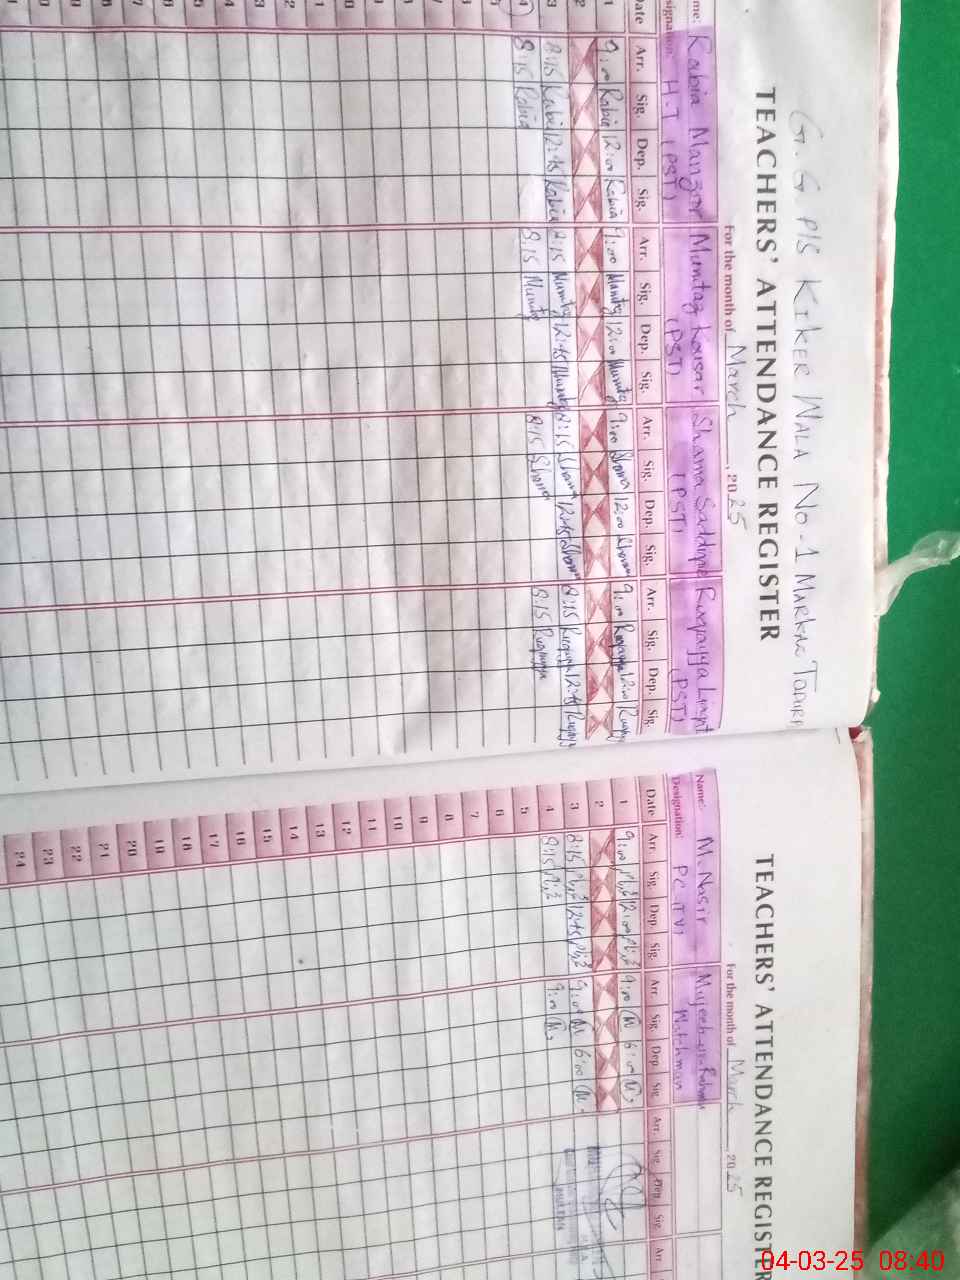 G. G. P/S KIKER WALA NO-1 MARKAZ TODARP
TEACHERS' ATTENDANCE REGISTER
For the month of March, 2025
me: Rabia Manzor Mumtaz Kousar Shama Saddique Ruqayya Limpt
signation: H-T (PST) (PST) (PST) (PST)
Date Arr. Sig. Dep. Sig. Arr. Sig. Dep. Sig. Arr. Sig. Dep. Sig. Arr. Sig. Dep. Sig.
1 9:00 Rabia 12:00 Rabia 9:00 Mumtaz 12:00 Mumtaz 9:00 Shama 12:00 Shama 9:00 Ruqayya 12:00 Ruqayya
2
3 8:15 Rabia 12:45 Rabia 8:15 Mumtaz 12:45 Mumtaz 8:15 Shama 12:45 Shama 8:15 Ruqayya 12:45 Ruqayya
4 8:15 Rabia 8:15 Mumtaz 8:15 Shama 8:15 Ruqayya
TEACHERS' ATTENDANCE REGISTER
For the month of March, 2025
Name: M. Nasir Mujeeb-ur-Rahman
Designation: PC (IV) Watchman
Date Arr. Sig. Dep. Sig. Arr. Sig. Dep. Sig. Arr. Sig. Dep. Sig. Arr.
1 9:00 12:00 9:00 6:00
2
3 8:15 12:45 9:00 6:00
4 8:15 9:00
5
6
7
8
9
10
11
12
13
14
15
16
17
18
19
20
21
22
23
24
04-03-25 08:40